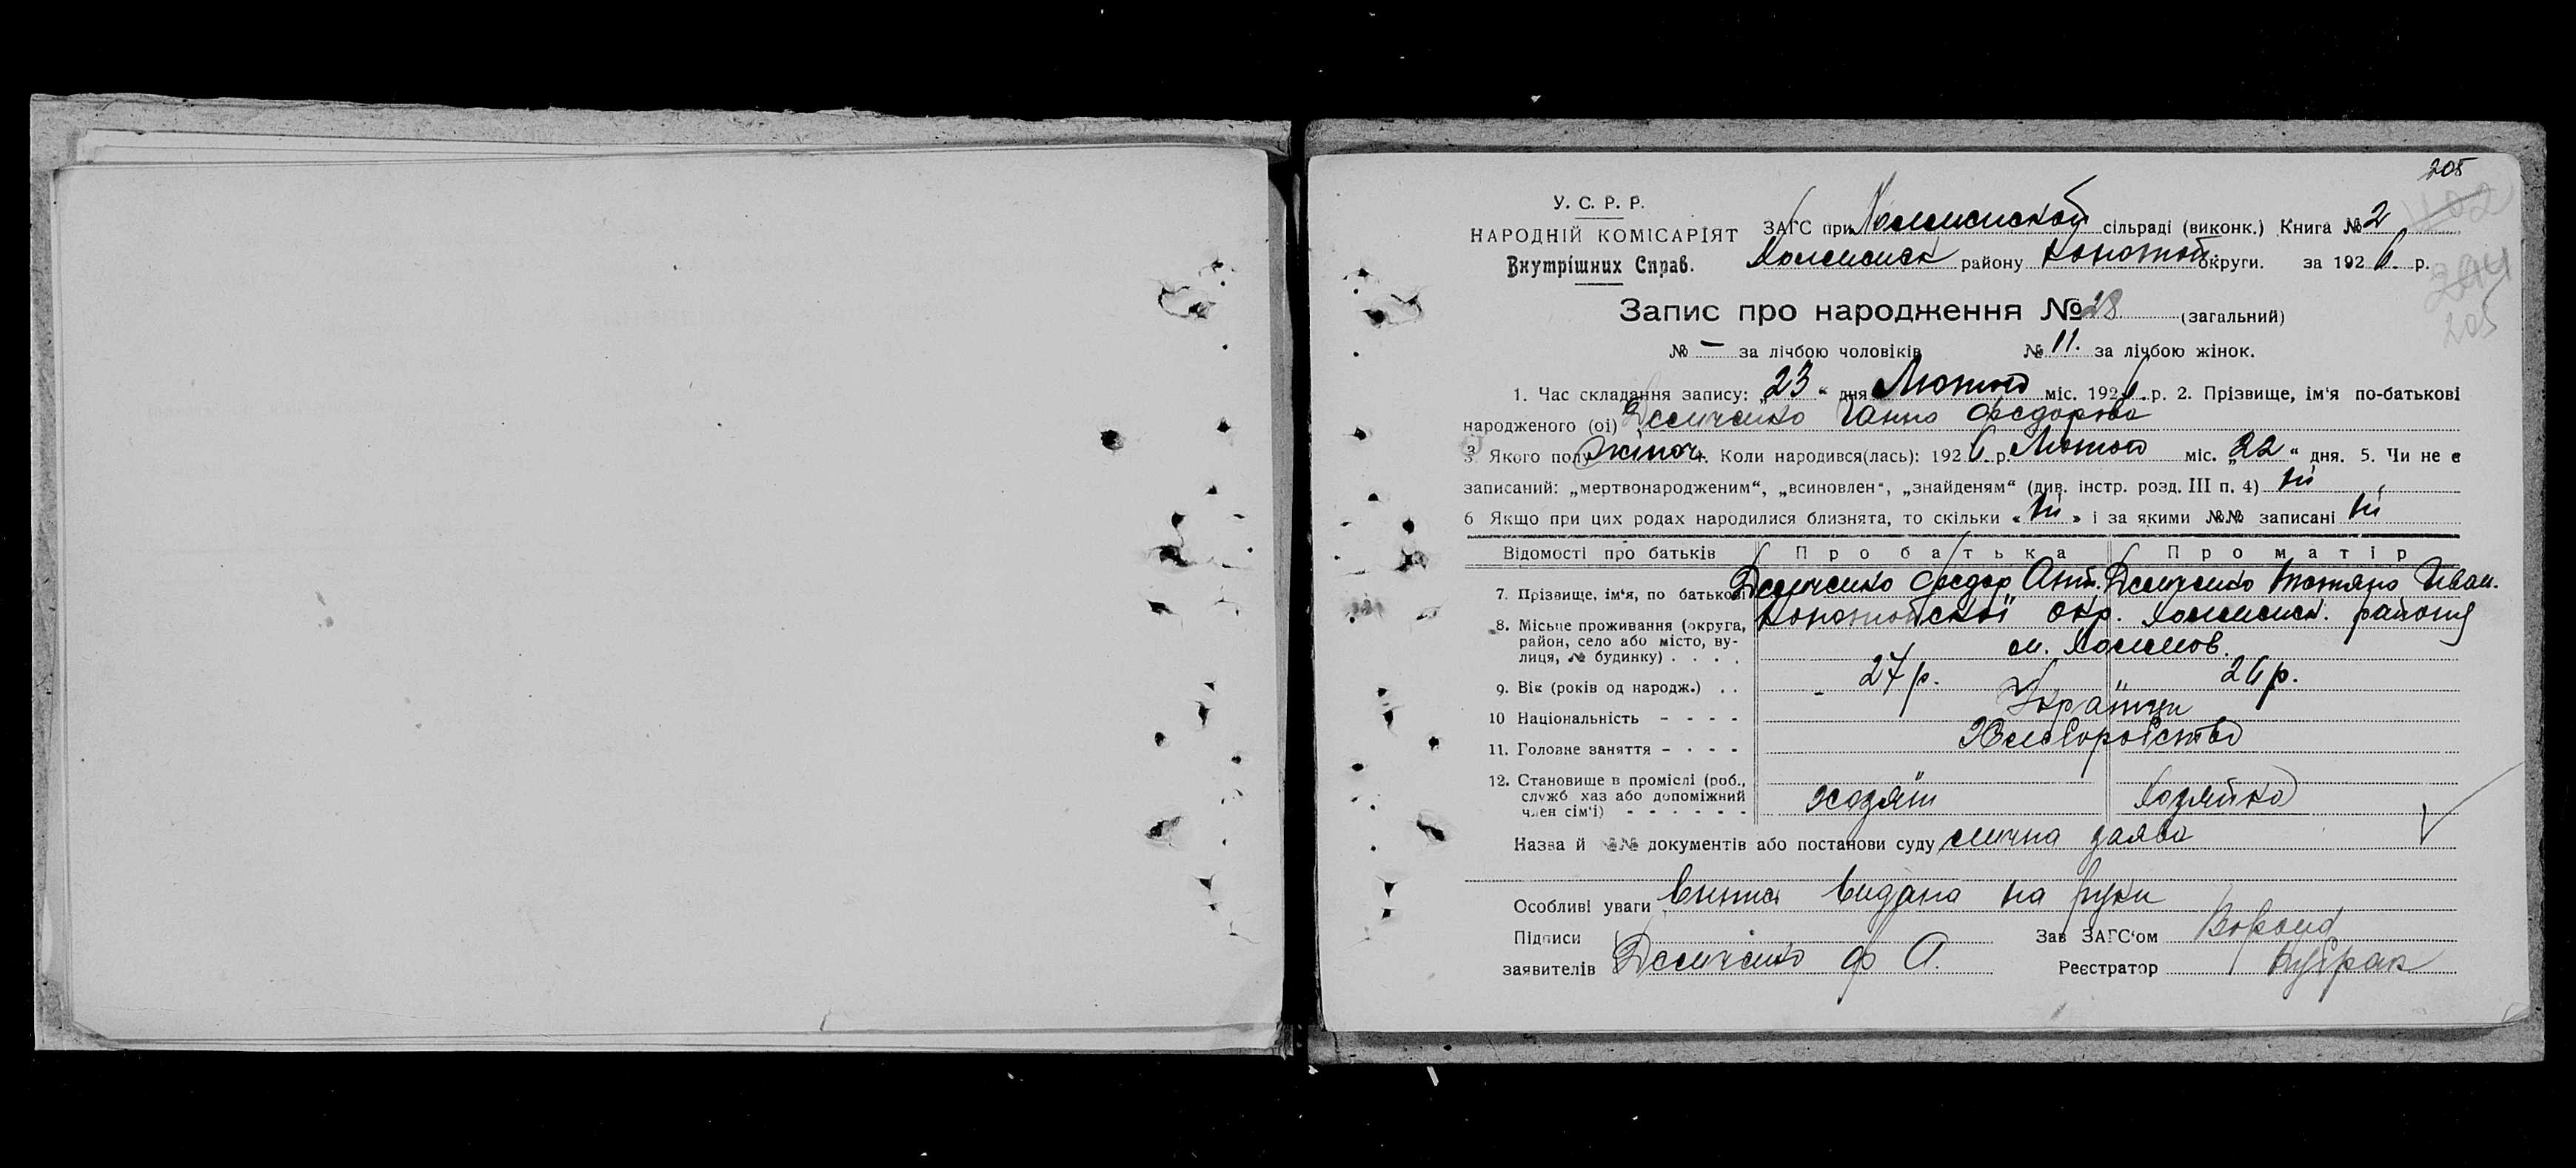 205
У. С. Р. Р.
НАРОДНІЙ КОМІСАРІЯТ
Внутрішних Справ.
ЗАГС при сільраді (виконк.) Книга № 2
району Конотоп. округи. за 1926 р.
294
205
Запис про народження № 28 (загальний)
№ – за лічбою чоловіків № 11. за лічбою жінок.
1. Час складання запису: „23“ дня Лютого міс. 1926 р. 2. Прізвище, ім'я по-батькові
народженого (ої) Демченко Ганна Федорова
3 Якого полу жіноч. 4. Коли народився(лась): 1926 р. Лютого міс. „22“ дня. 5. Чи не є
записаний: „мертвонародженим“, „всиновлен“, „знайденям“ (див. інстр. розд. III п. 4) ні
6 Якщо при цих родах народилися близнята, то скільки «ні» і за якими №№ записані ні
Відомості про батьків Про батька Про матір
7. Прізвище, ім'я, по батькові Демченко Федор Ант. Демченко Татяна Иван.
8. Місьце проживання (округа, район, село або місто, вулиця, № будинку) Конотопської окр. района
м.
9. Вік (років од народж.) 27 р. 26 р.
10 Національність Українці
11. Головне заняття Хліборобство
12. Становище в промислі (роб., служб. хаз або допоміжний член сім'ї) хозяїн Хозяйка
Назва й №№ документів або постанови суду смична заява
Особливі уваги видана на руки
Підписи Зав ЗАГС'ом
заявителів Демченко Ф А. Реєстратор